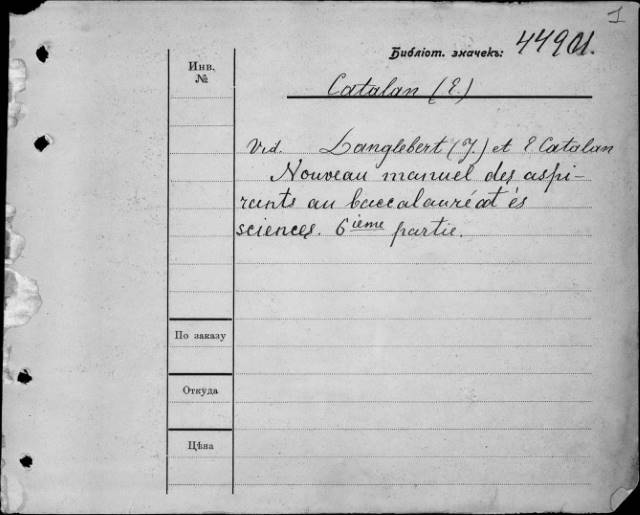 1
Библіот. значекъ: 44901.
Инв.
№
Catalan (E.)
Vid. Langlebert (J.) et E Catalan
Nouveau manuel des aspi-
rants au baccalauréat ès
sciences. 6ième partie.
По заказу
Откуда
Цѣна